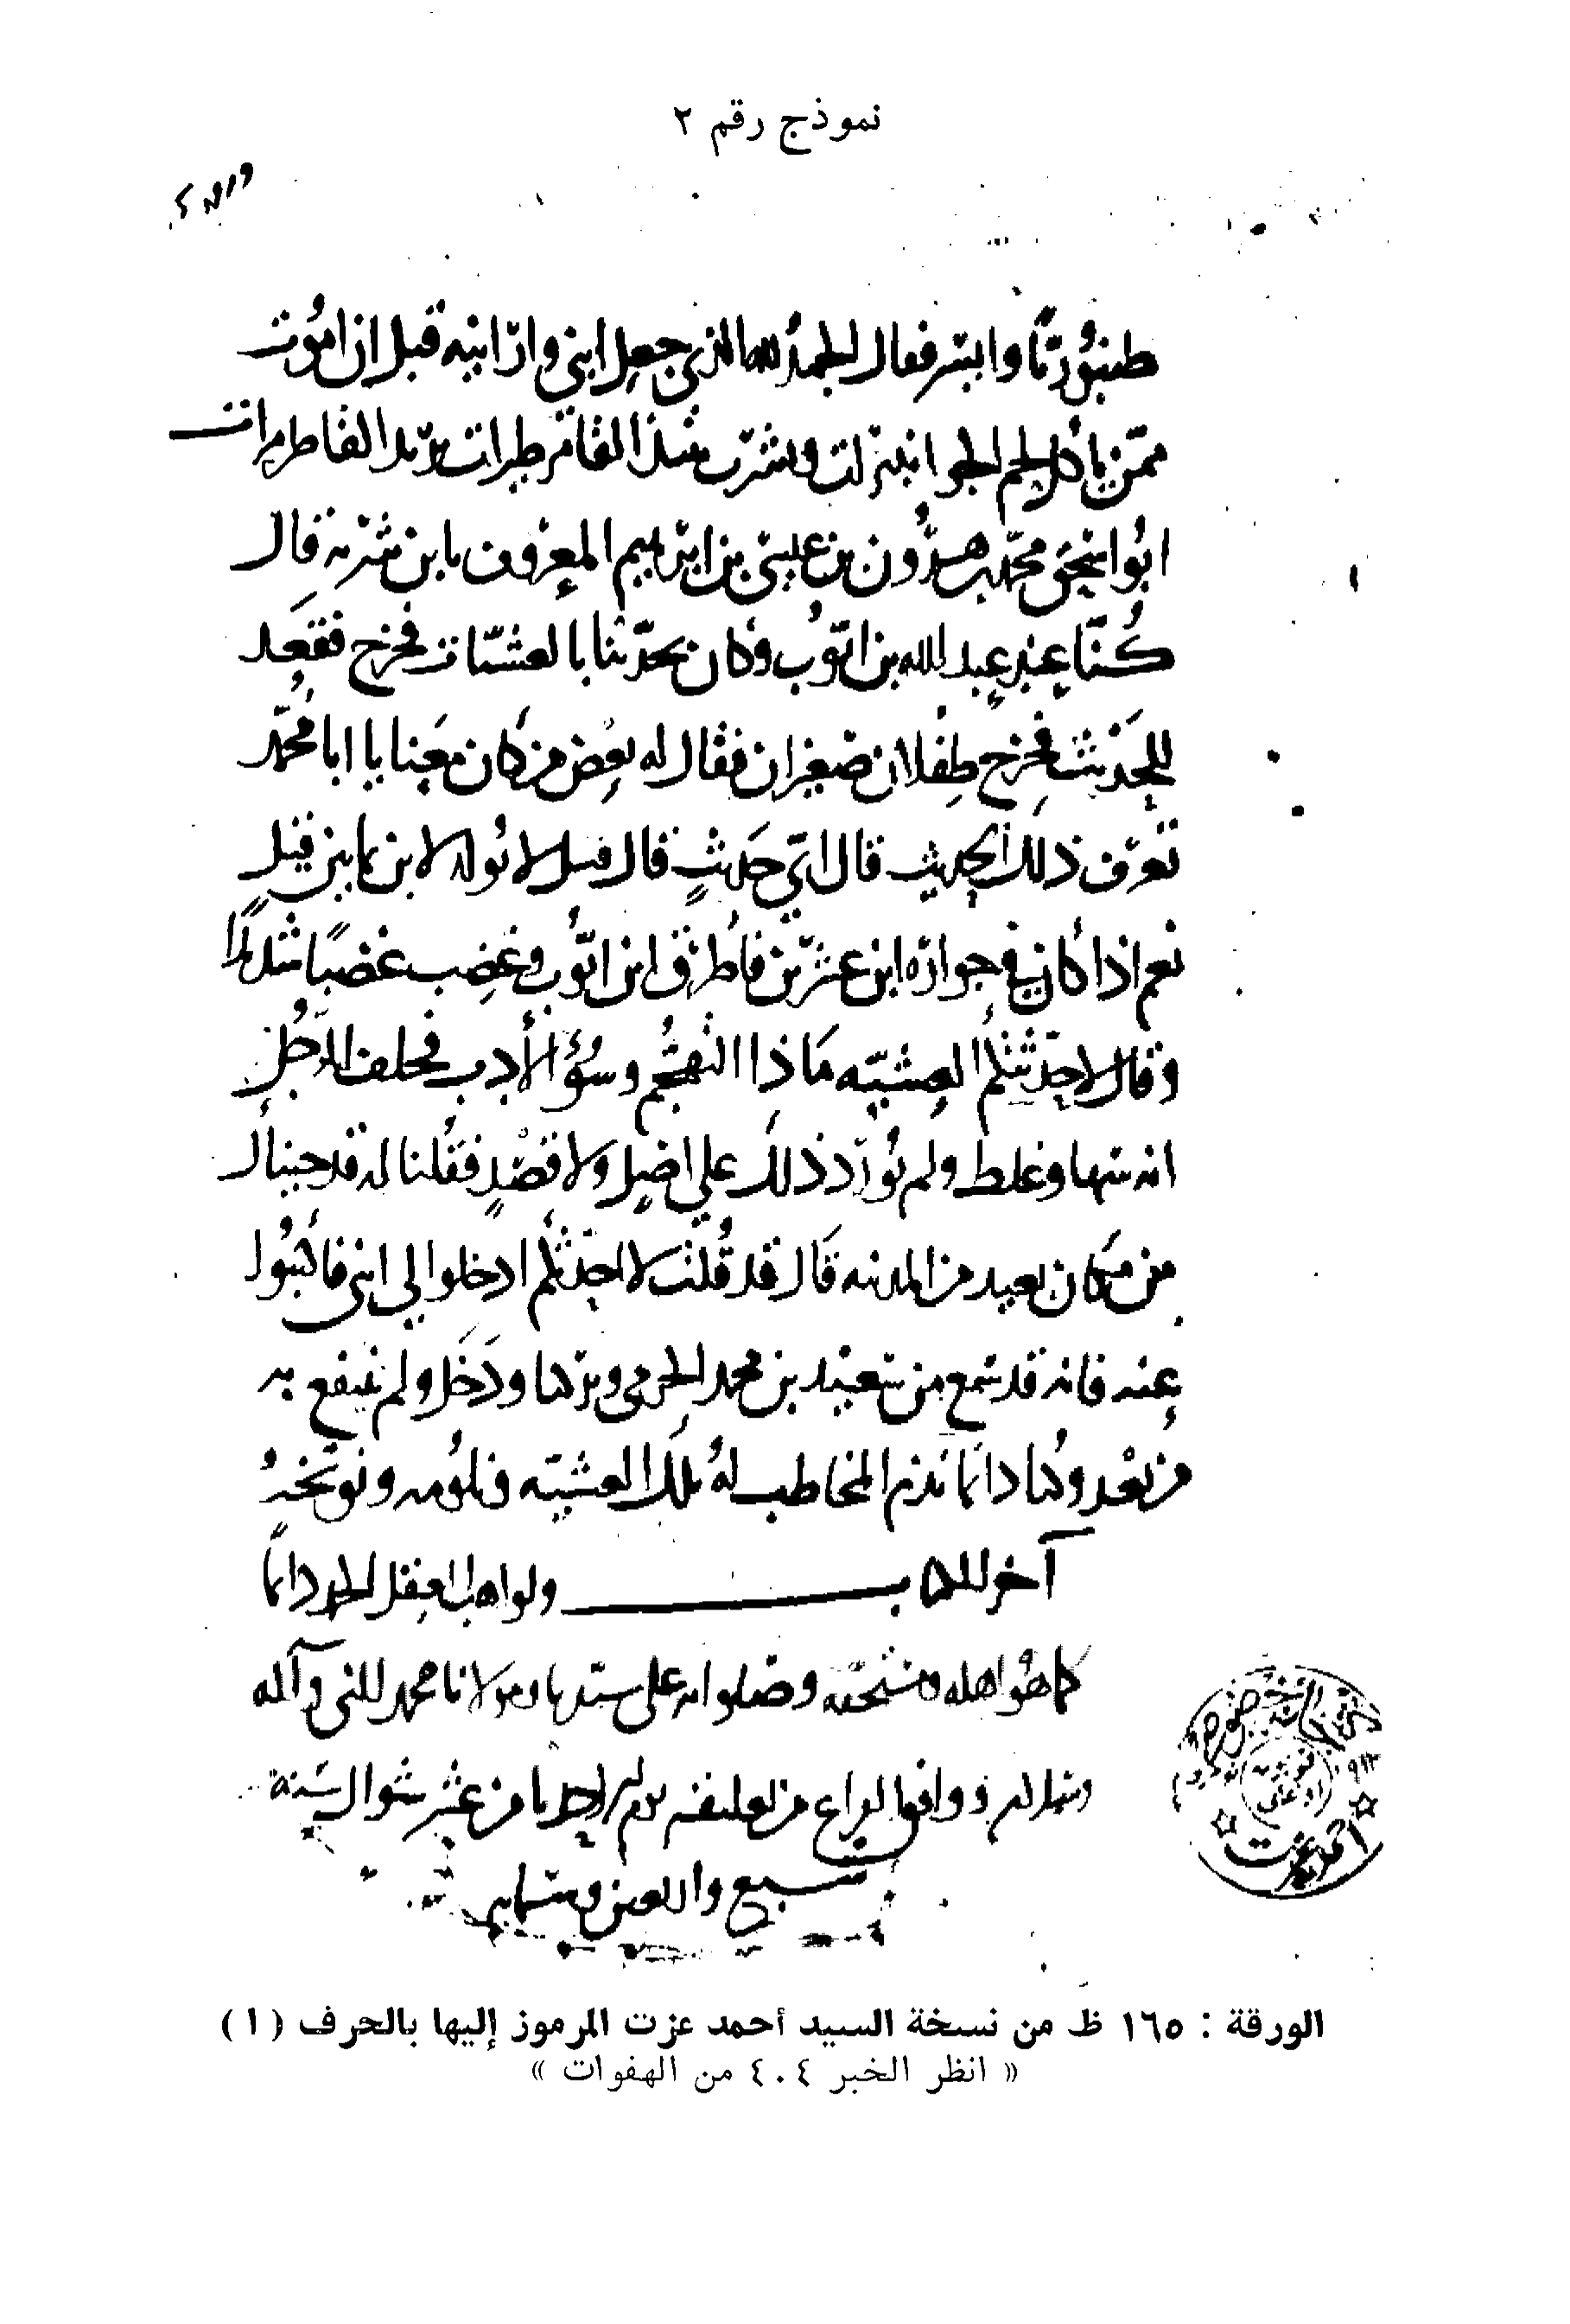 نموذج رقم ٢
طنبُوريًّا وابتر فقال الحمدُ لله الذي جعل ابني وابن ابنيه قبل ان امُوت
ممّن ياكل لحم الجوانبيزات ويشرب
ابُو اسحق محمّد بن هرُون بن عيسى بن ابرهيم المعروف بابن بُريه قال
كُنّا عند عبد الله بن ايّوب وكان يحدّثنا بالعشيّات فخرج فقعد
للحَديث فخرج طفلان صغيران فقال له بعض من كان معنا يا ابا مُحمّد
تعرف ذلك الحديث قال ايّ حَديثٍ قال قيل لا يُولد لابن ثمانين قيل
نعم اذا كان في جواره ابن عشرين فاطرق ابن ايّوب وغضب غضبًا شديدًا
وقال لا حدّثتكُم العشيّه مَا ذا التهجّم وسُوُ الأدب فحلف الرّجُل
انه سها وغلط ولم يُورد ذلك على اصلٍ ولا قصْدٍ فقُلنا له قد جينا
من مَكان بعيد من المدينه قَال قد قُلت لا احدّثكُم ادخلوا الى ابني فاكتبُوا
عنه فانه قد سمع من سَعيد بن محمد الجرمي وتركنا ودَخَل ولم ننتفع به
من بَعْد وكُنّا دائمًا نذم المخاطب لهُ تلك العشيّه ونلُومه ونوبّخهُ
آخر الكتاب ولواهب العقل الحمد دائما
كما هُو اهله ومستحقه وصلواته على سيّدنا ومولانا محمد النبي وآله
ووافق الفراع من تعليقه من عشر شوال سَنة
سبع واربعين وستمايه
احمد عزت
الورقة : ١٦٥ ظ من نسخة السيد أحمد عزت المرموز إليها بالحرف ( ا )
« انظر الخبر ٤٠٤ من الهفوات »